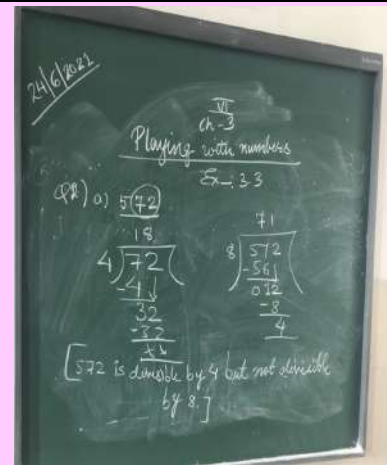 24/6/2021
VI
ch-3
Playing with numbers
Ex-: 3.3
Q2) a) 572
18
4)72(
-4↓
32
-32
71
8)572(
-56↓
012
-8
4
[572 is divisible by 4 but not divisible
by 8.]